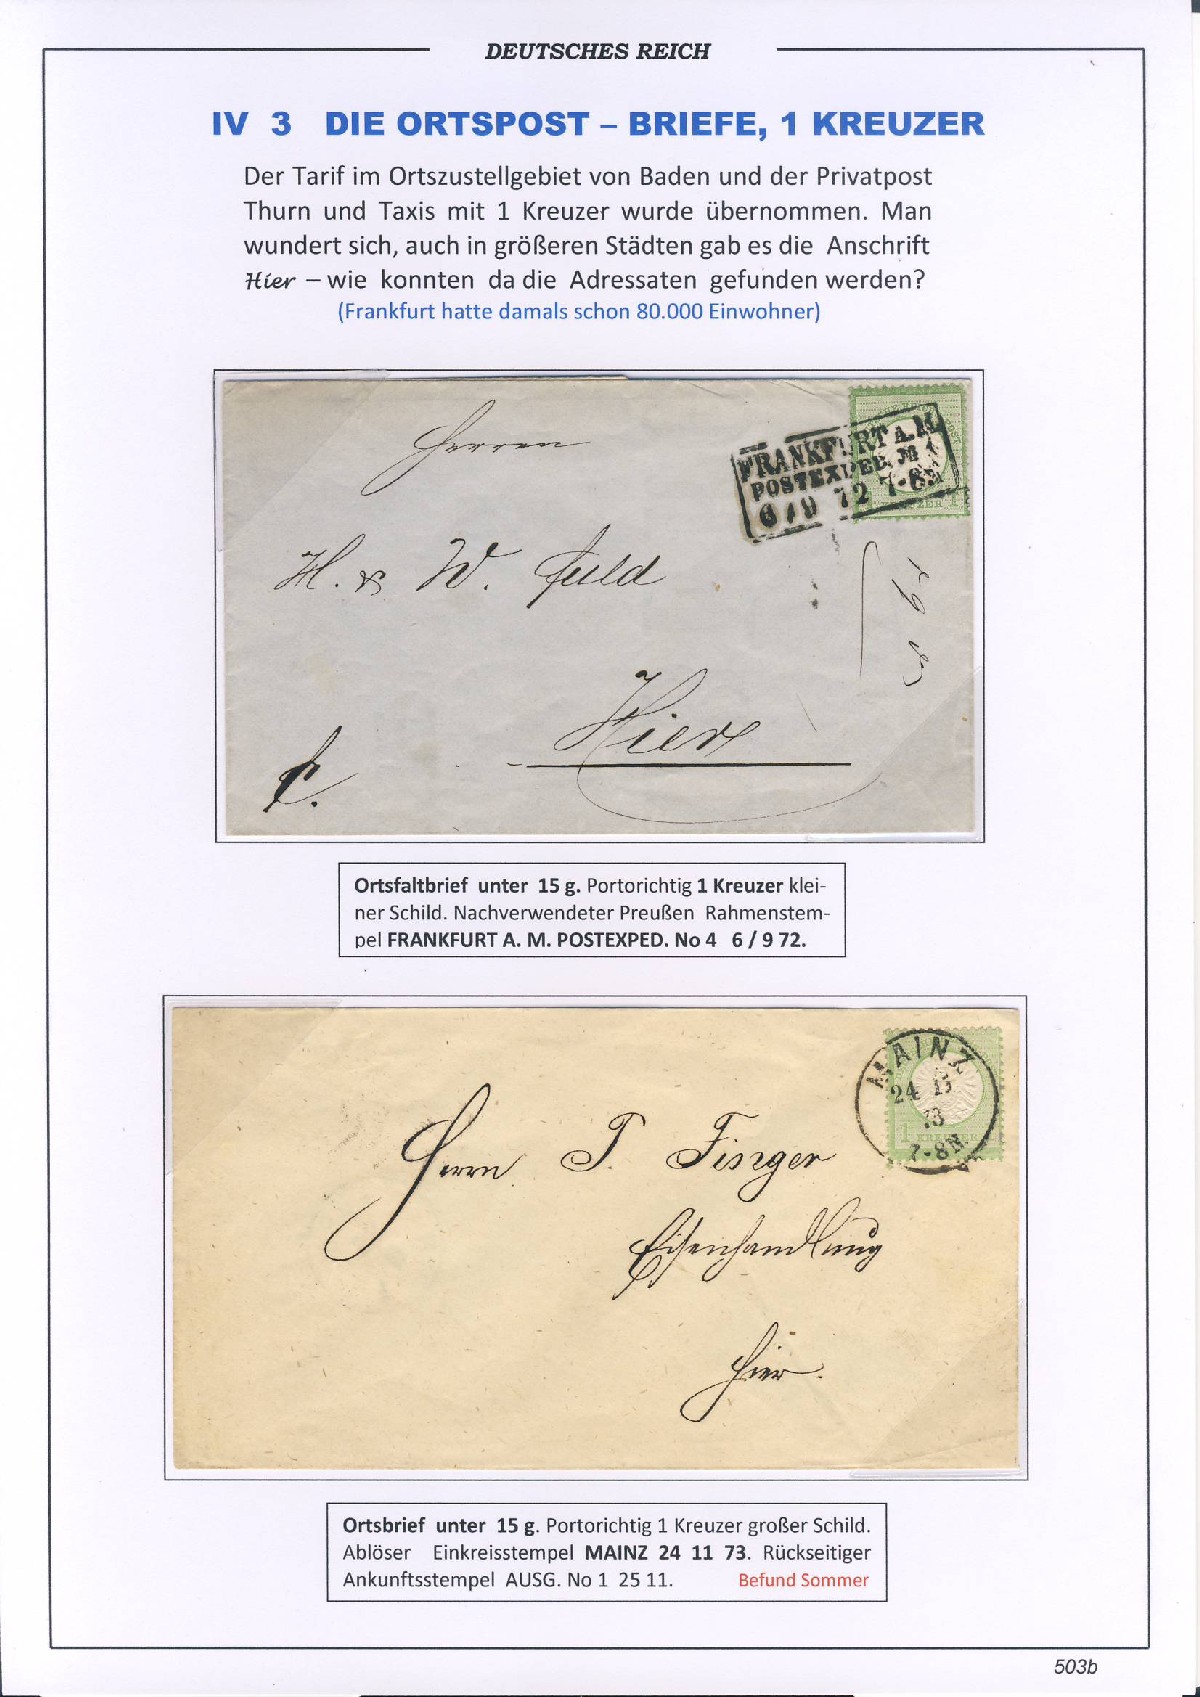 DEUTSCHES REICH
IV 3 DIE ORTSPOST – BRIEFE, 1 KREUZER
Der Tarif im Ortszustellgebiet von Baden und der Privatpost
Thurn und Taxis mit 1 Kreuzer wurde übernommen. Man
wundert sich, auch in größeren Städten gab es die Anschrift
Hier – wie konnten da die Adressaten gefunden werden?
(Frankfurt hatte damals schon 80.000 Einwohner)
FRANKFURT A. M.
POSTEXPED. No 4
6/9 72 7-8N
KREUZER 1
Herren
H. & W. Fuld
Hier
Ortsfaltbrief unter 15 g. Portorichtig 1 Kreuzer klei-
ner Schild. Nachverwendeter Preußen Rahmenstem-
pel FRANKFURT A. M. POSTEXPED. No 4 6 / 9 72.
MAINZ
24 11
73
7-8N.
1 KREUZER
Herrn J. Finger
Eisenhandlung
Hier.
Ortsbrief unter 15 g. Portorichtig 1 Kreuzer großer Schild.
Ablöser Einkreisstempel MAINZ 24 11 73. Rückseitiger
Ankunftsstempel AUSG. No 1 25 11. Befund Sommer
503b